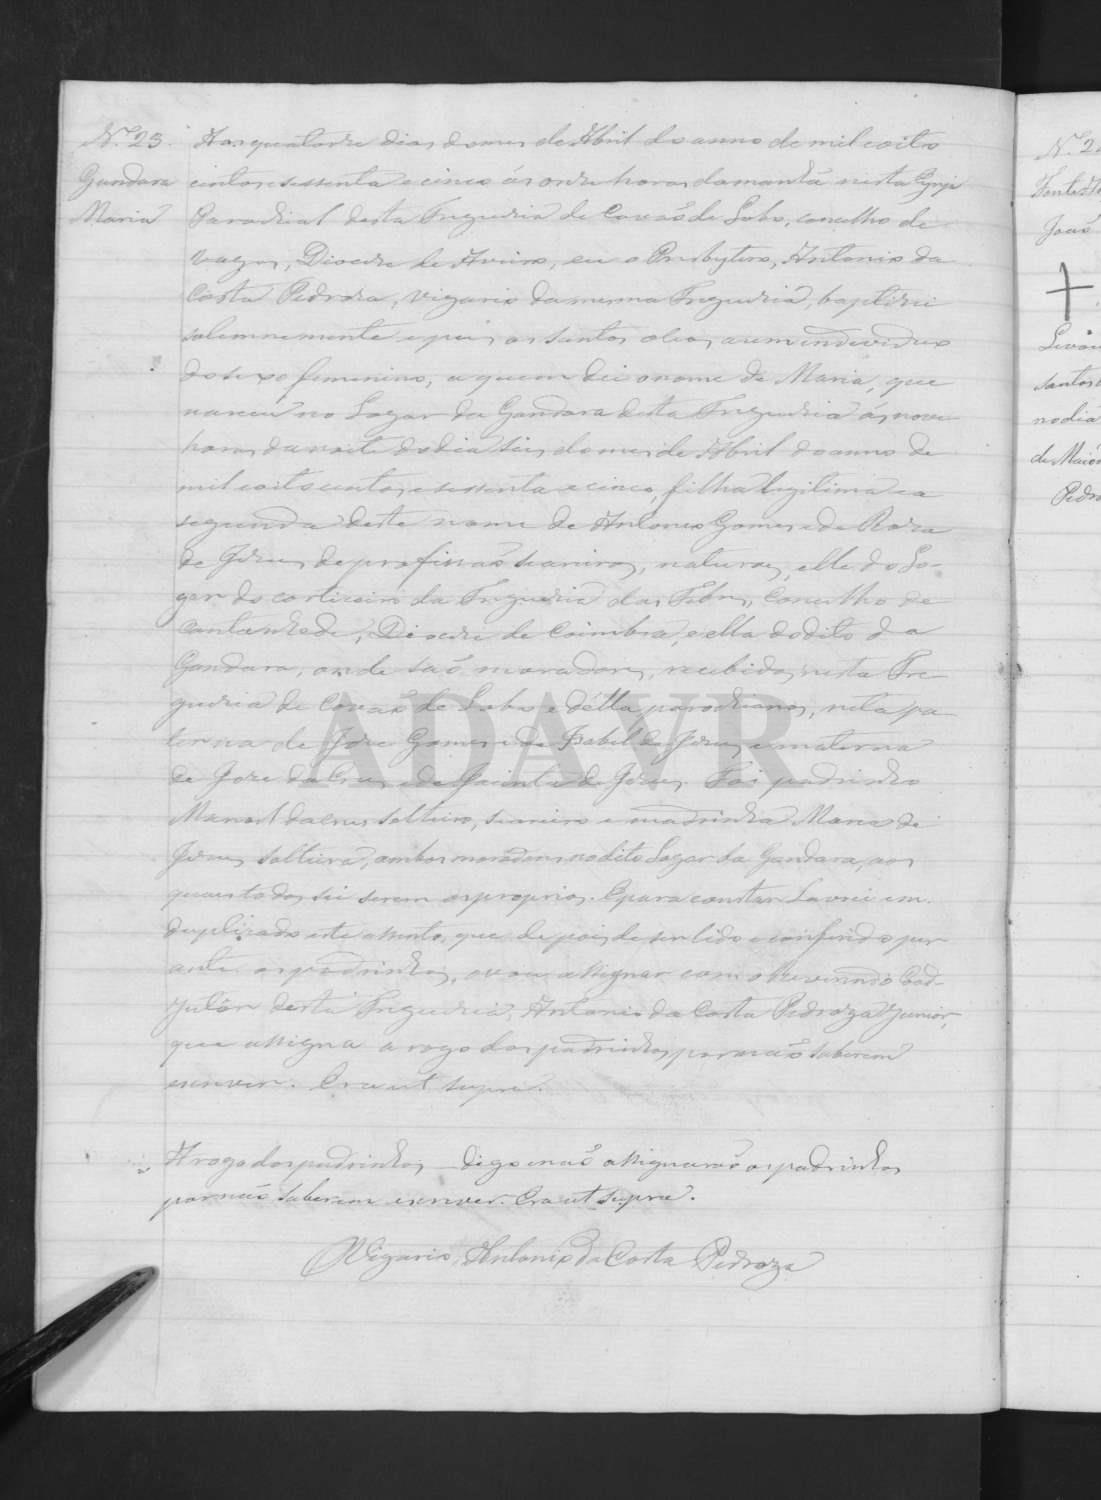 N.º 23.
Gandara
Maria
Aos quatorze dias do mes de Abril do anno de mil e oito
centos e sessenta e cinco ás onze horas da manhã nesta Igreja
Parochial desta Freguezia de Covão de Lobo, concelho de
Vagos, Diocese de Aveiro, eu o Presbytero, Antonio da
Costa Pedroza, Vigario da mesma Freguezia, baptizei
solemnemente e puz os santos oleos a um individuo
do sexo femenino, a quem dei o nome de Maria, que
nasceu no Logar da Gandara desta Freguezia ás nove
horas da noite do dia seis do mes de Abril do anno de
mil e oito centos e sessenta e cinco, filha legitima e a
segunda deste nome de Antonio Gomes e de Roza
de Jezus de profissão seareiros, naturaes, elle do Lo-
gar do corticeiro da Freguezia das Febres, Concelho de
Cantanhede, Diocese de Coimbra, e ella do dito da
Gandara, onde são moradores, recebidos nesta Fre-
guezia de Covão de Lobo e della parochianos, neta pa-
terna de Joze Gomes e de Izabel de Jezus, e materna
de Joze da Cruz e de Jacinta de Jezus. Foi padrinho
Manoel da Cruz solteiro, seareiro e madrinha Maria de
Jezus solteira, ambos moradores no dito Logar da Gandara, aos
quaes todos sei serem os proprios. E para constar Lavrei em
duplicado este assento, que depois de ser lido e conferido per-
ante os padrinhos, o vou assignar com o Reverendo Coad-
jutor desta Freguezia, Antonio da Costa Pedroza Junior,
que assigna a rogo dos padrinhos por não saberem
escrever. Era ut supra.
A rogo dos padrinhos digo e não assignarão os padrinhos
por não saberem escrever. Era ut supra.
O Vigario, Antonio da Costa Pedroza
N. 2
João
santos
no dia
de Maio
Pedro
ADAVR